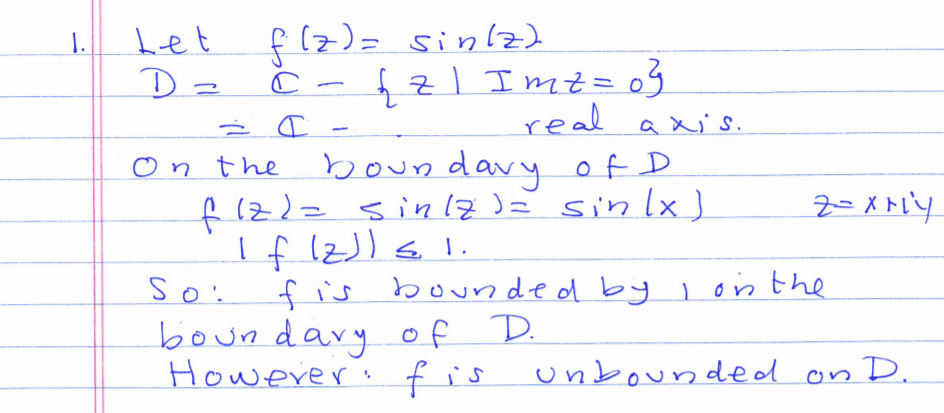 1. Let f(z) = sin(z)
D = ℂ - {z | Im z = 0}
= ℂ - real axis.
On the boundary of D
f(z) = sin(z) = sin(x) z = x + iy
|f(z)| ≤ 1.
So: f is bounded by 1 on the
boundary of D.
However: f is unbounded on D.